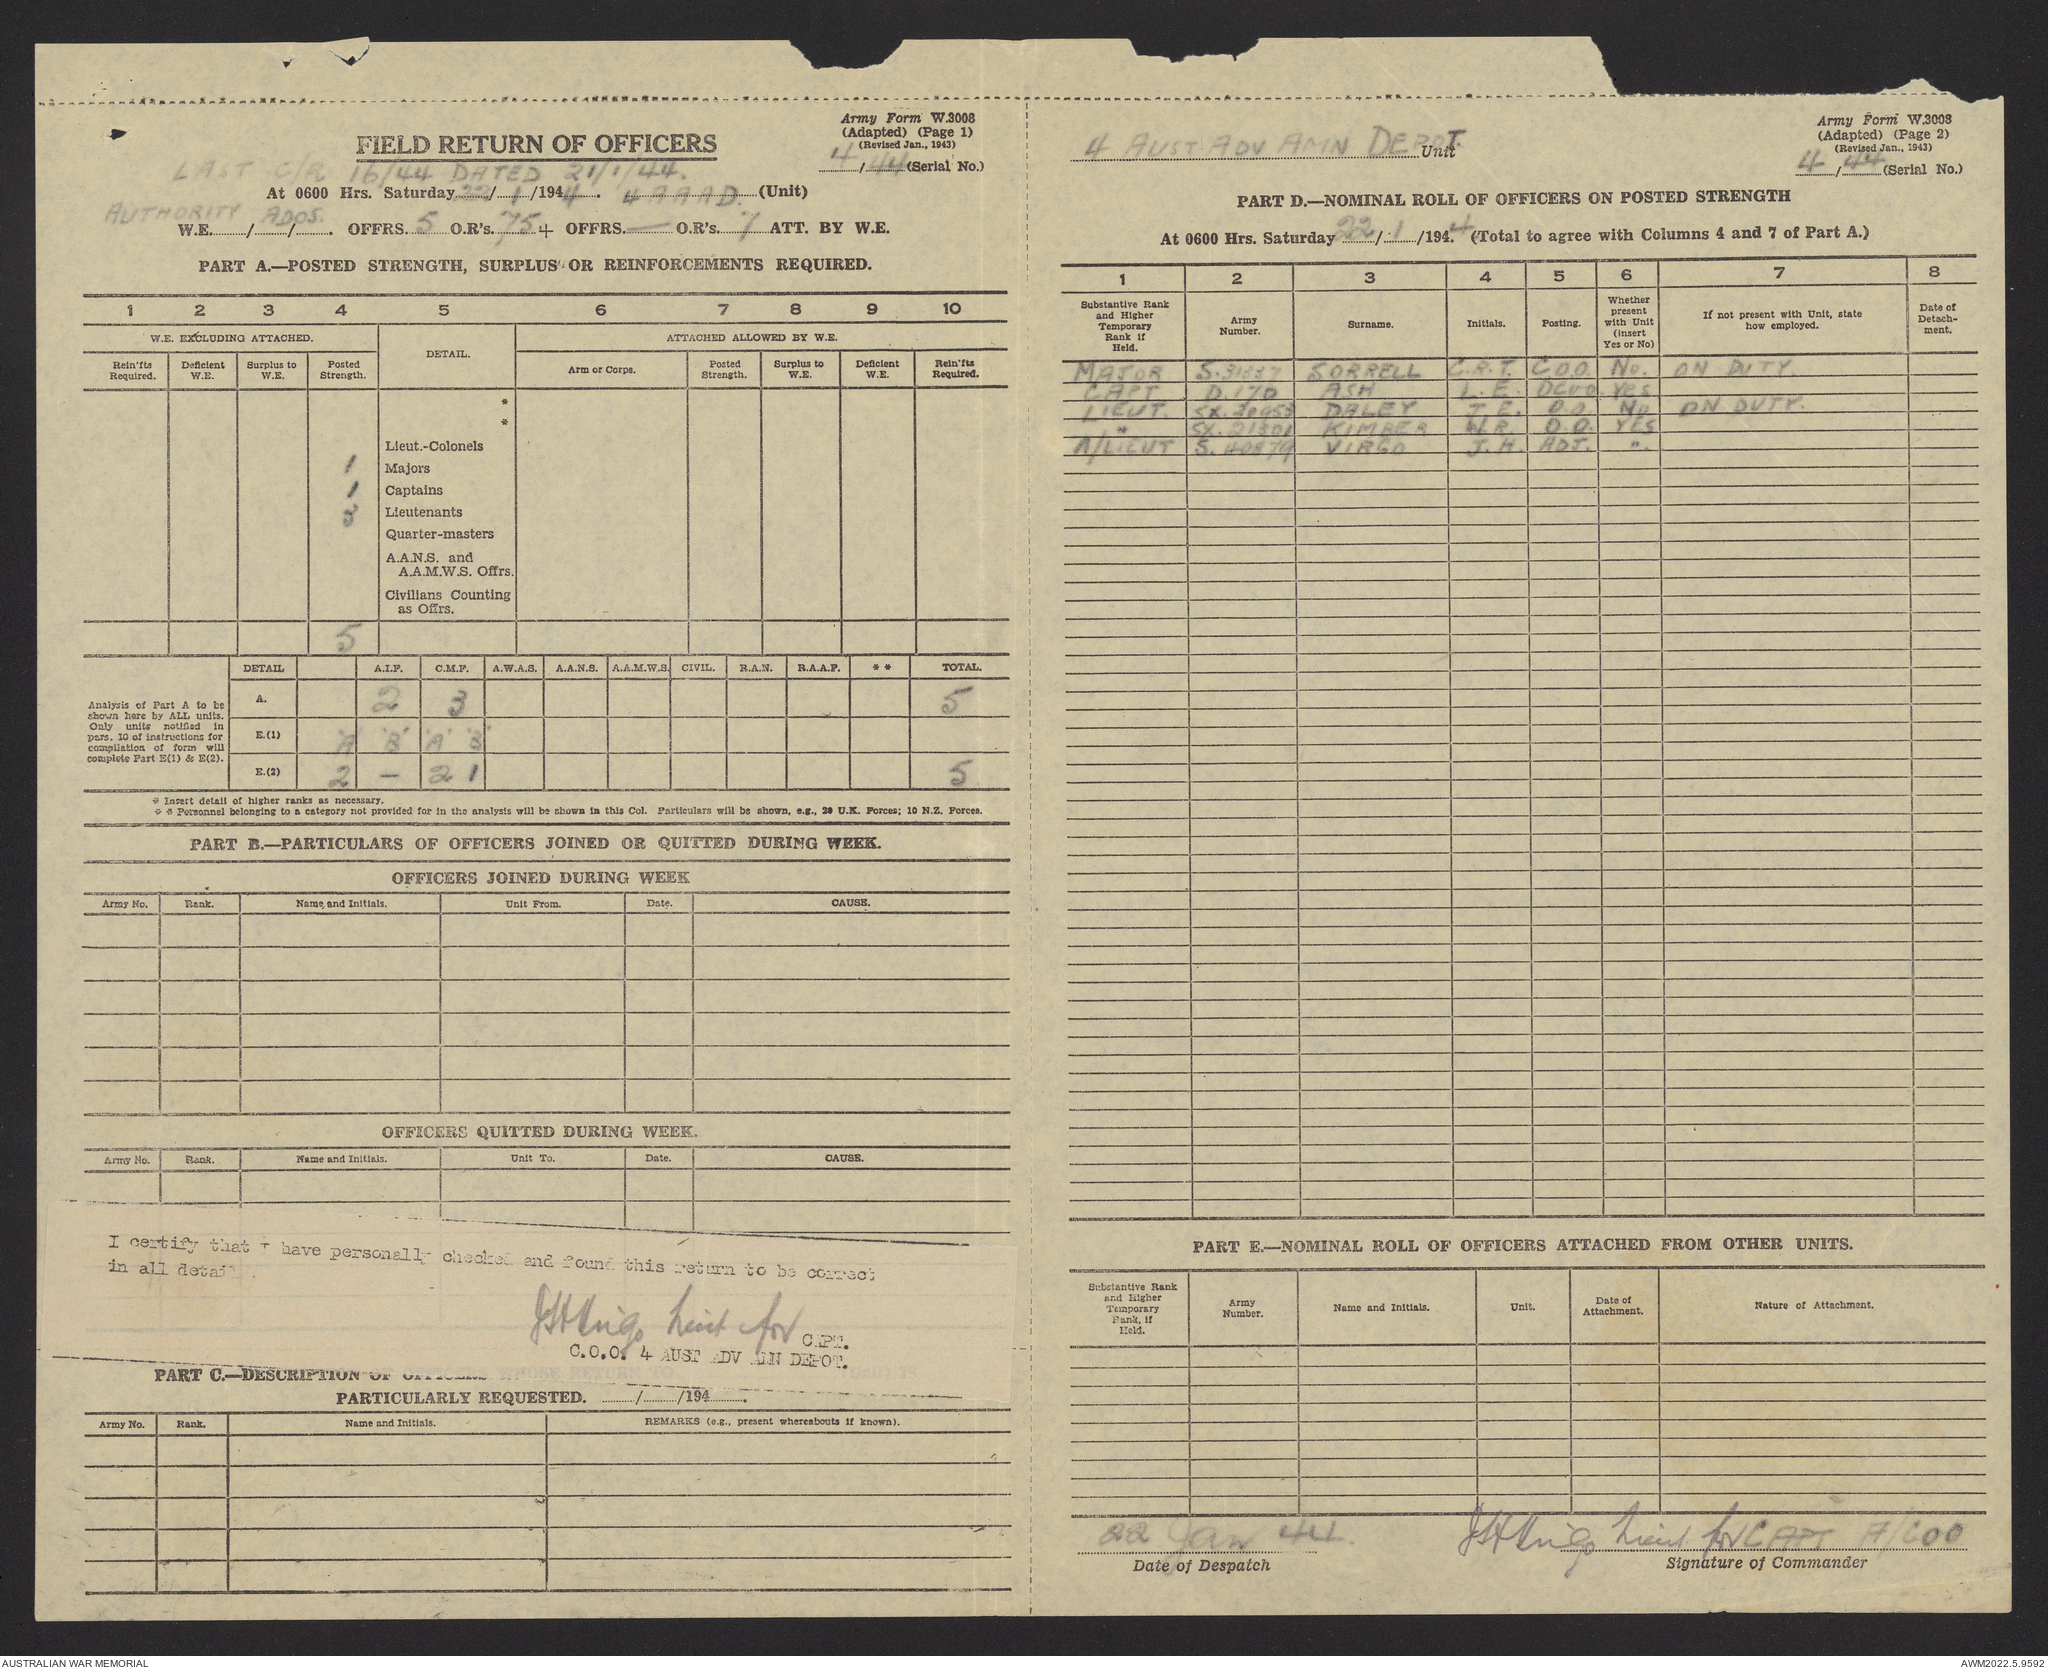 Army Form W.3008
(Adapted) (Page 1)
(Revised Jan., 1943)
4/44 (Serial No.)
FIELD RETURN OF OFFICERS
LAST C/R 16/44 DATED 21/1/44.
At 0600 Hrs. Saturday 22/1/1944. 4 A A A D. (Unit)
AUTHORITY ADOS.
W.E. / / . OFFRS. 5 O.R's. 75 + OFFRS. — O.R's. 7 ATT. BY W.E.
PART A.—POSTED STRENGTH, SURPLUS OR REINFORCEMENTS REQUIRED.
1 2 3 4 5 6 7 8 9 10
W.E. EXCLUDING ATTACHED. DETAIL. ATTACHED ALLOWED BY W.E.
Rein'fts Required. Deficient W.E. Surplus to W.E. Posted Strength. Arm or Corps. Posted Strength. Surplus to W.E. Deficient W.E. Rein'fts Required.
*
*
Lieut.-Colonels
1 Majors
1 Captains
3 Lieutenants
Quarter-masters
A.A.N.S. and
A.A.M.W.S. Offrs.
Civilians Counting
as Offrs.
5
DETAIL A.I.F. C.M.F. A.W.A.S. A.A.N.S. A.A.M.W.S. CIVIL. R.A.N. R.A.A.F. * * TOTAL.
Analysis of Part A to be
shown here by ALL units.
Only units notified in
pars. 10 of instructions for
compilation of form will
complete Part E(1) & E(2).
A. 2 3 5
E.(1) 'A' 'B' 'A' 'B'
E.(2) 2 — 2 1 5
* Insert detail of higher ranks as necessary.
* * Personnel belonging to a category not provided for in the analysis will be shown in this Col. Particulars will be shown, e.g., 20 U.K. Forces; 10 N.Z. Forces.
PART B.—PARTICULARS OF OFFICERS JOINED OR QUITTED DURING WEEK.
OFFICERS JOINED DURING WEEK
Army No. Rank. Name and Initials. Unit From. Date. CAUSE.
OFFICERS QUITTED DURING WEEK.
Army No. Rank. Name and Initials. Unit To. Date. CAUSE.
I certify that I have personally checked and found this return to be correct
in all detail.
JHVirgo Lieut for CAPT.
C.O.O. 4 AUST ADV AMN DEPOT.
PART C.—DESCRIPTION OF OFFICERS
PARTICULARLY REQUESTED. / /194 .
Army No. Rank. Name and Initials. REMARKS (e.g., present whereabouts if known).
Army Form W.3008
(Adapted) (Page 2)
(Revised Jan., 1943)
4/44 (Serial No.)
4 AUST ADV AMN DEPOT. Unit
PART D.—NOMINAL ROLL OF OFFICERS ON POSTED STRENGTH
At 0600 Hrs. Saturday 22/1/1944. (Total to agree with Columns 4 and 7 of Part A.)
1 2 3 4 5 6 7 8
Substantive Rank and Higher Temporary Rank if Held. Army Number. Surname. Initials. Posting. Whether present with Unit (insert Yes or No) If not present with Unit, state how employed. Date of Detach-ment.
MAJOR S.31837 SORRELL C.R.T. C.O.O. No. ON DUTY.
CAPT D.170 ASH L.E. DCOO YES
LIEUT. DALEY J.E. O.O. No ON DUTY.
" SX.21301 KIMBER W.R. O.O. YES
A/LIEUT S.40879 VIRGO J.H. ADJ. ".
PART E.—NOMINAL ROLL OF OFFICERS ATTACHED FROM OTHER UNITS.
Substantive Rank and Higher Temporary Rank, if Held. Army Number. Name and Initials. Unit. Date of Attachment. Nature of Attachment.
22 Jan 44. JHVirgo Lieut for CAPT A/COO
Date of Despatch Signature of Commander
AUSTRALIAN WAR MEMORIAL AWM2022.5.9592